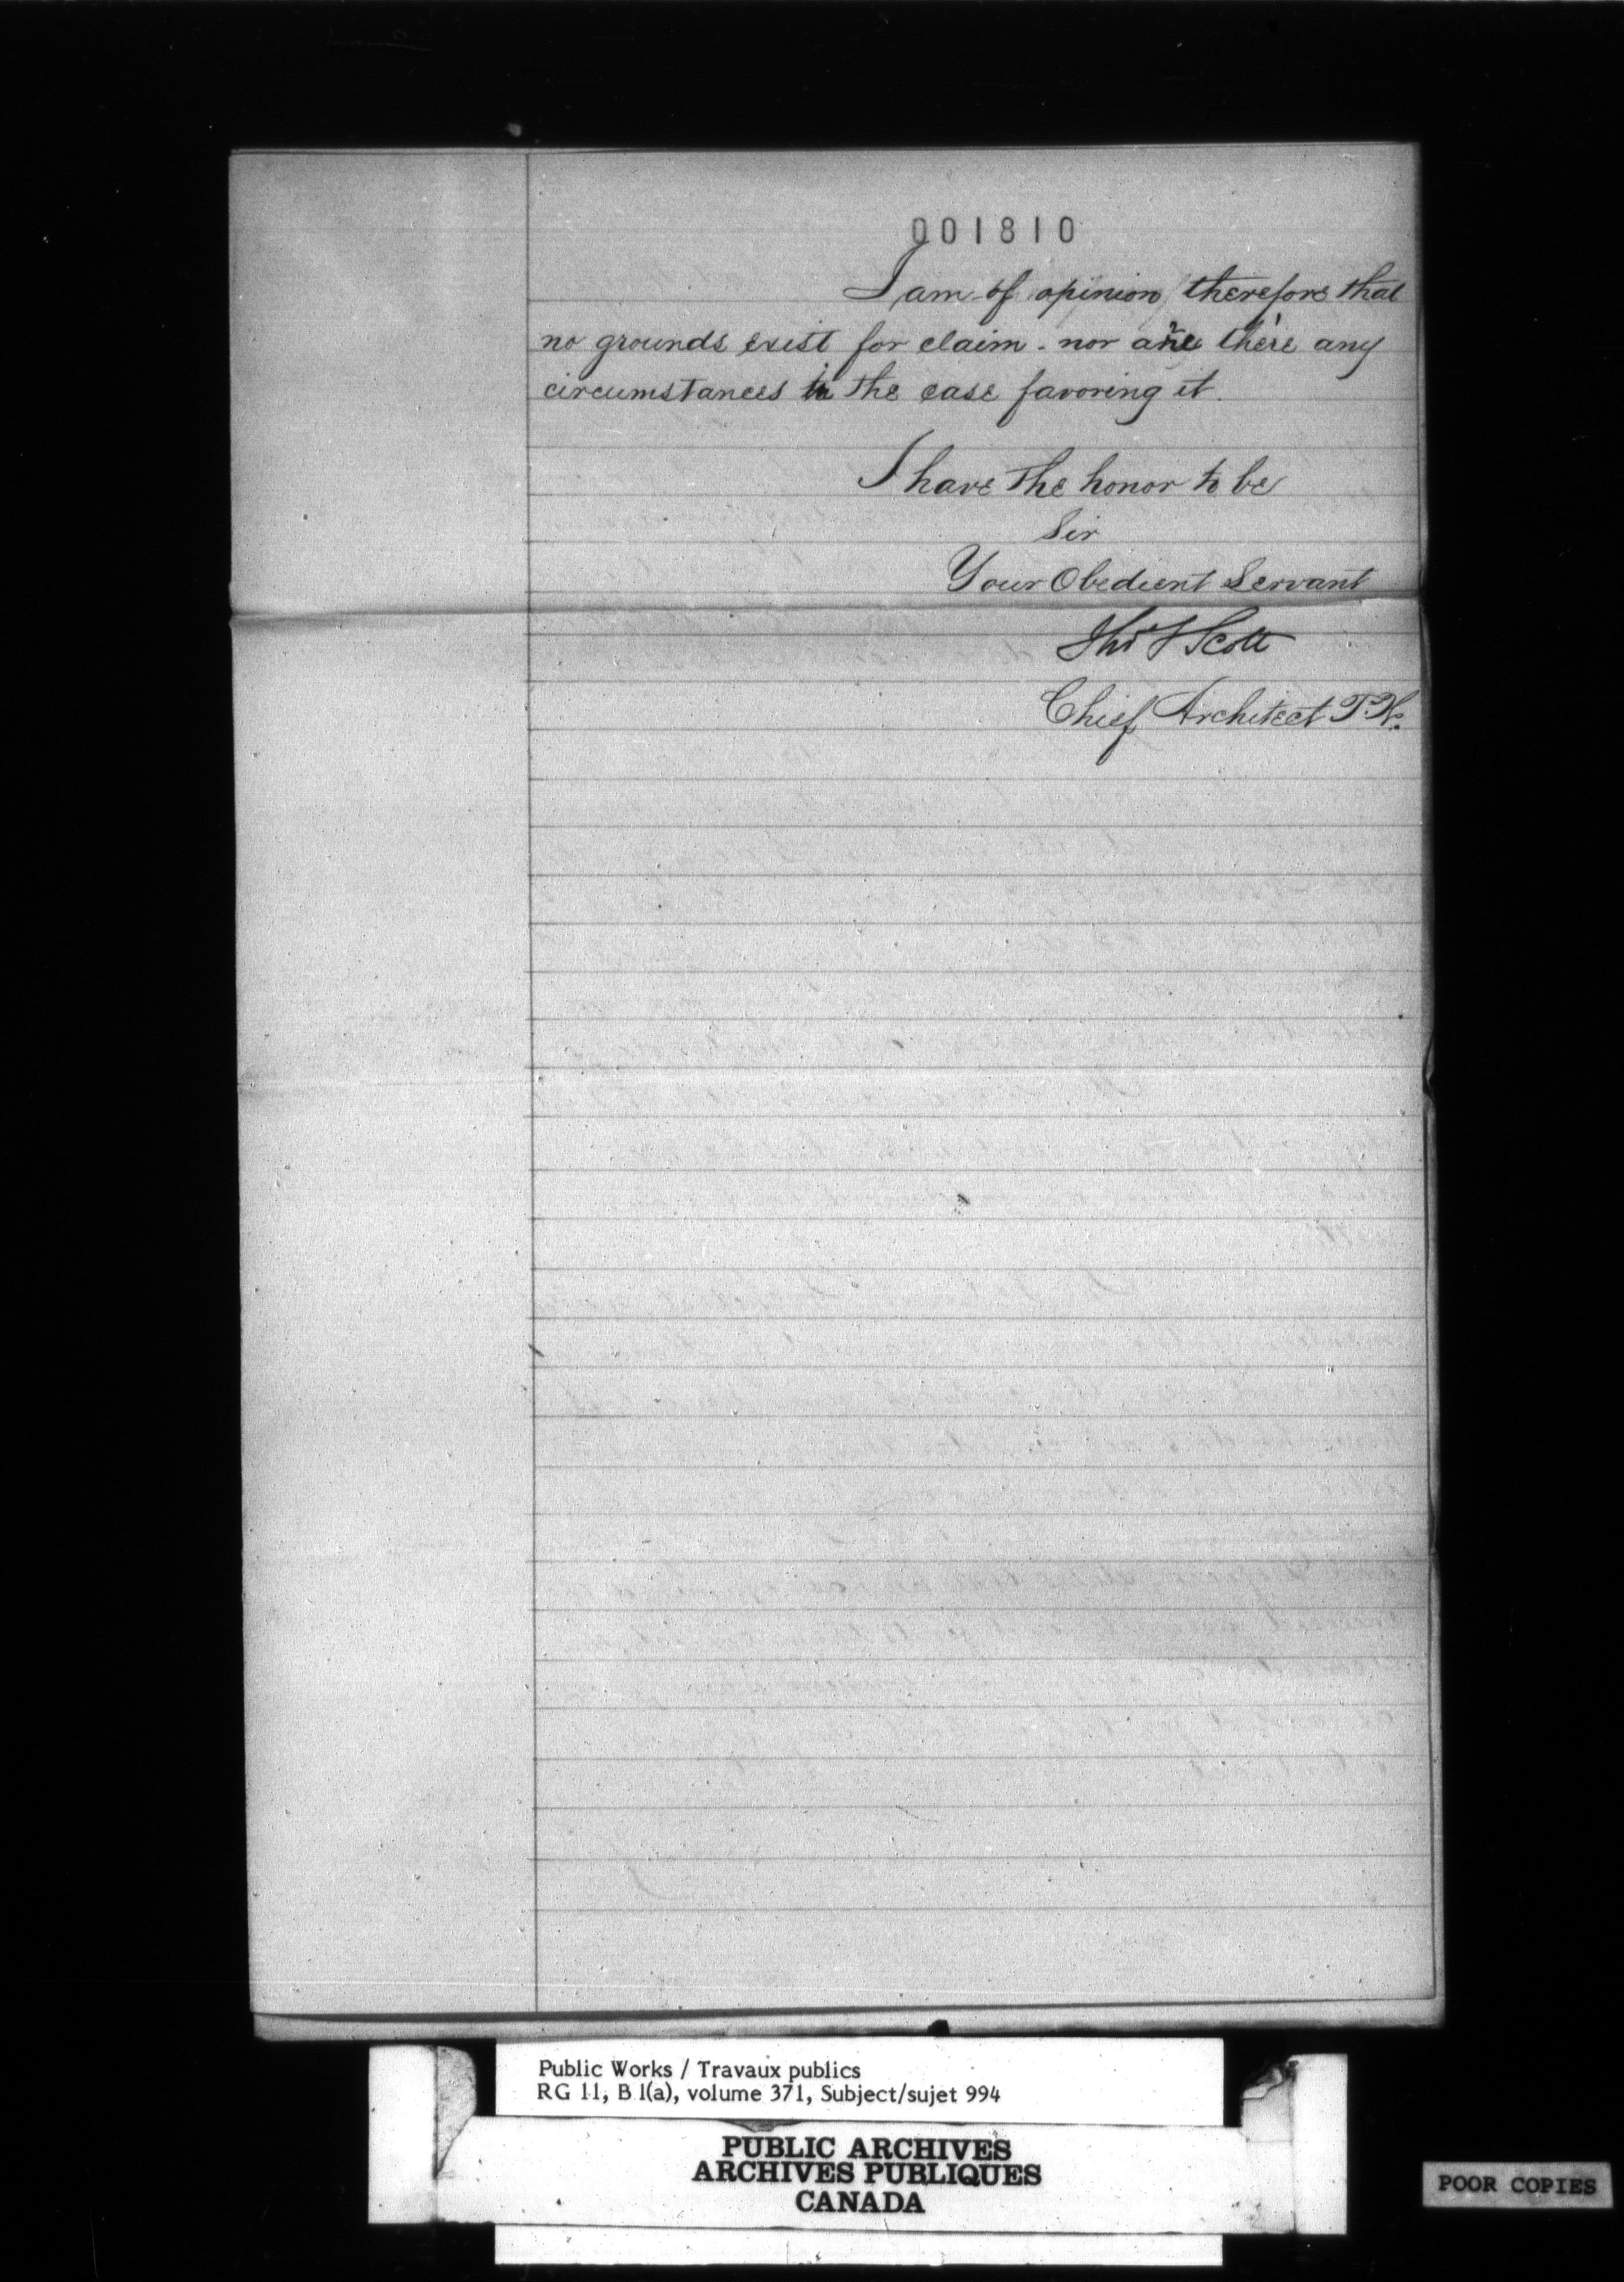 001810
I am of opinion therefore that
no grounds exist for claim. nor are there any
circumstances in the case favoring it.
I have the honor to be
Sir
Your Obedient Servant
Thos S Scott
Chief Architect P.W.
Public Works / Travaux publics
RG 11, B 1(a), volume 371, Subject/sujet 994
PUBLIC ARCHIVES
ARCHIVES PUBLIQUES
CANADA
POOR COPIES